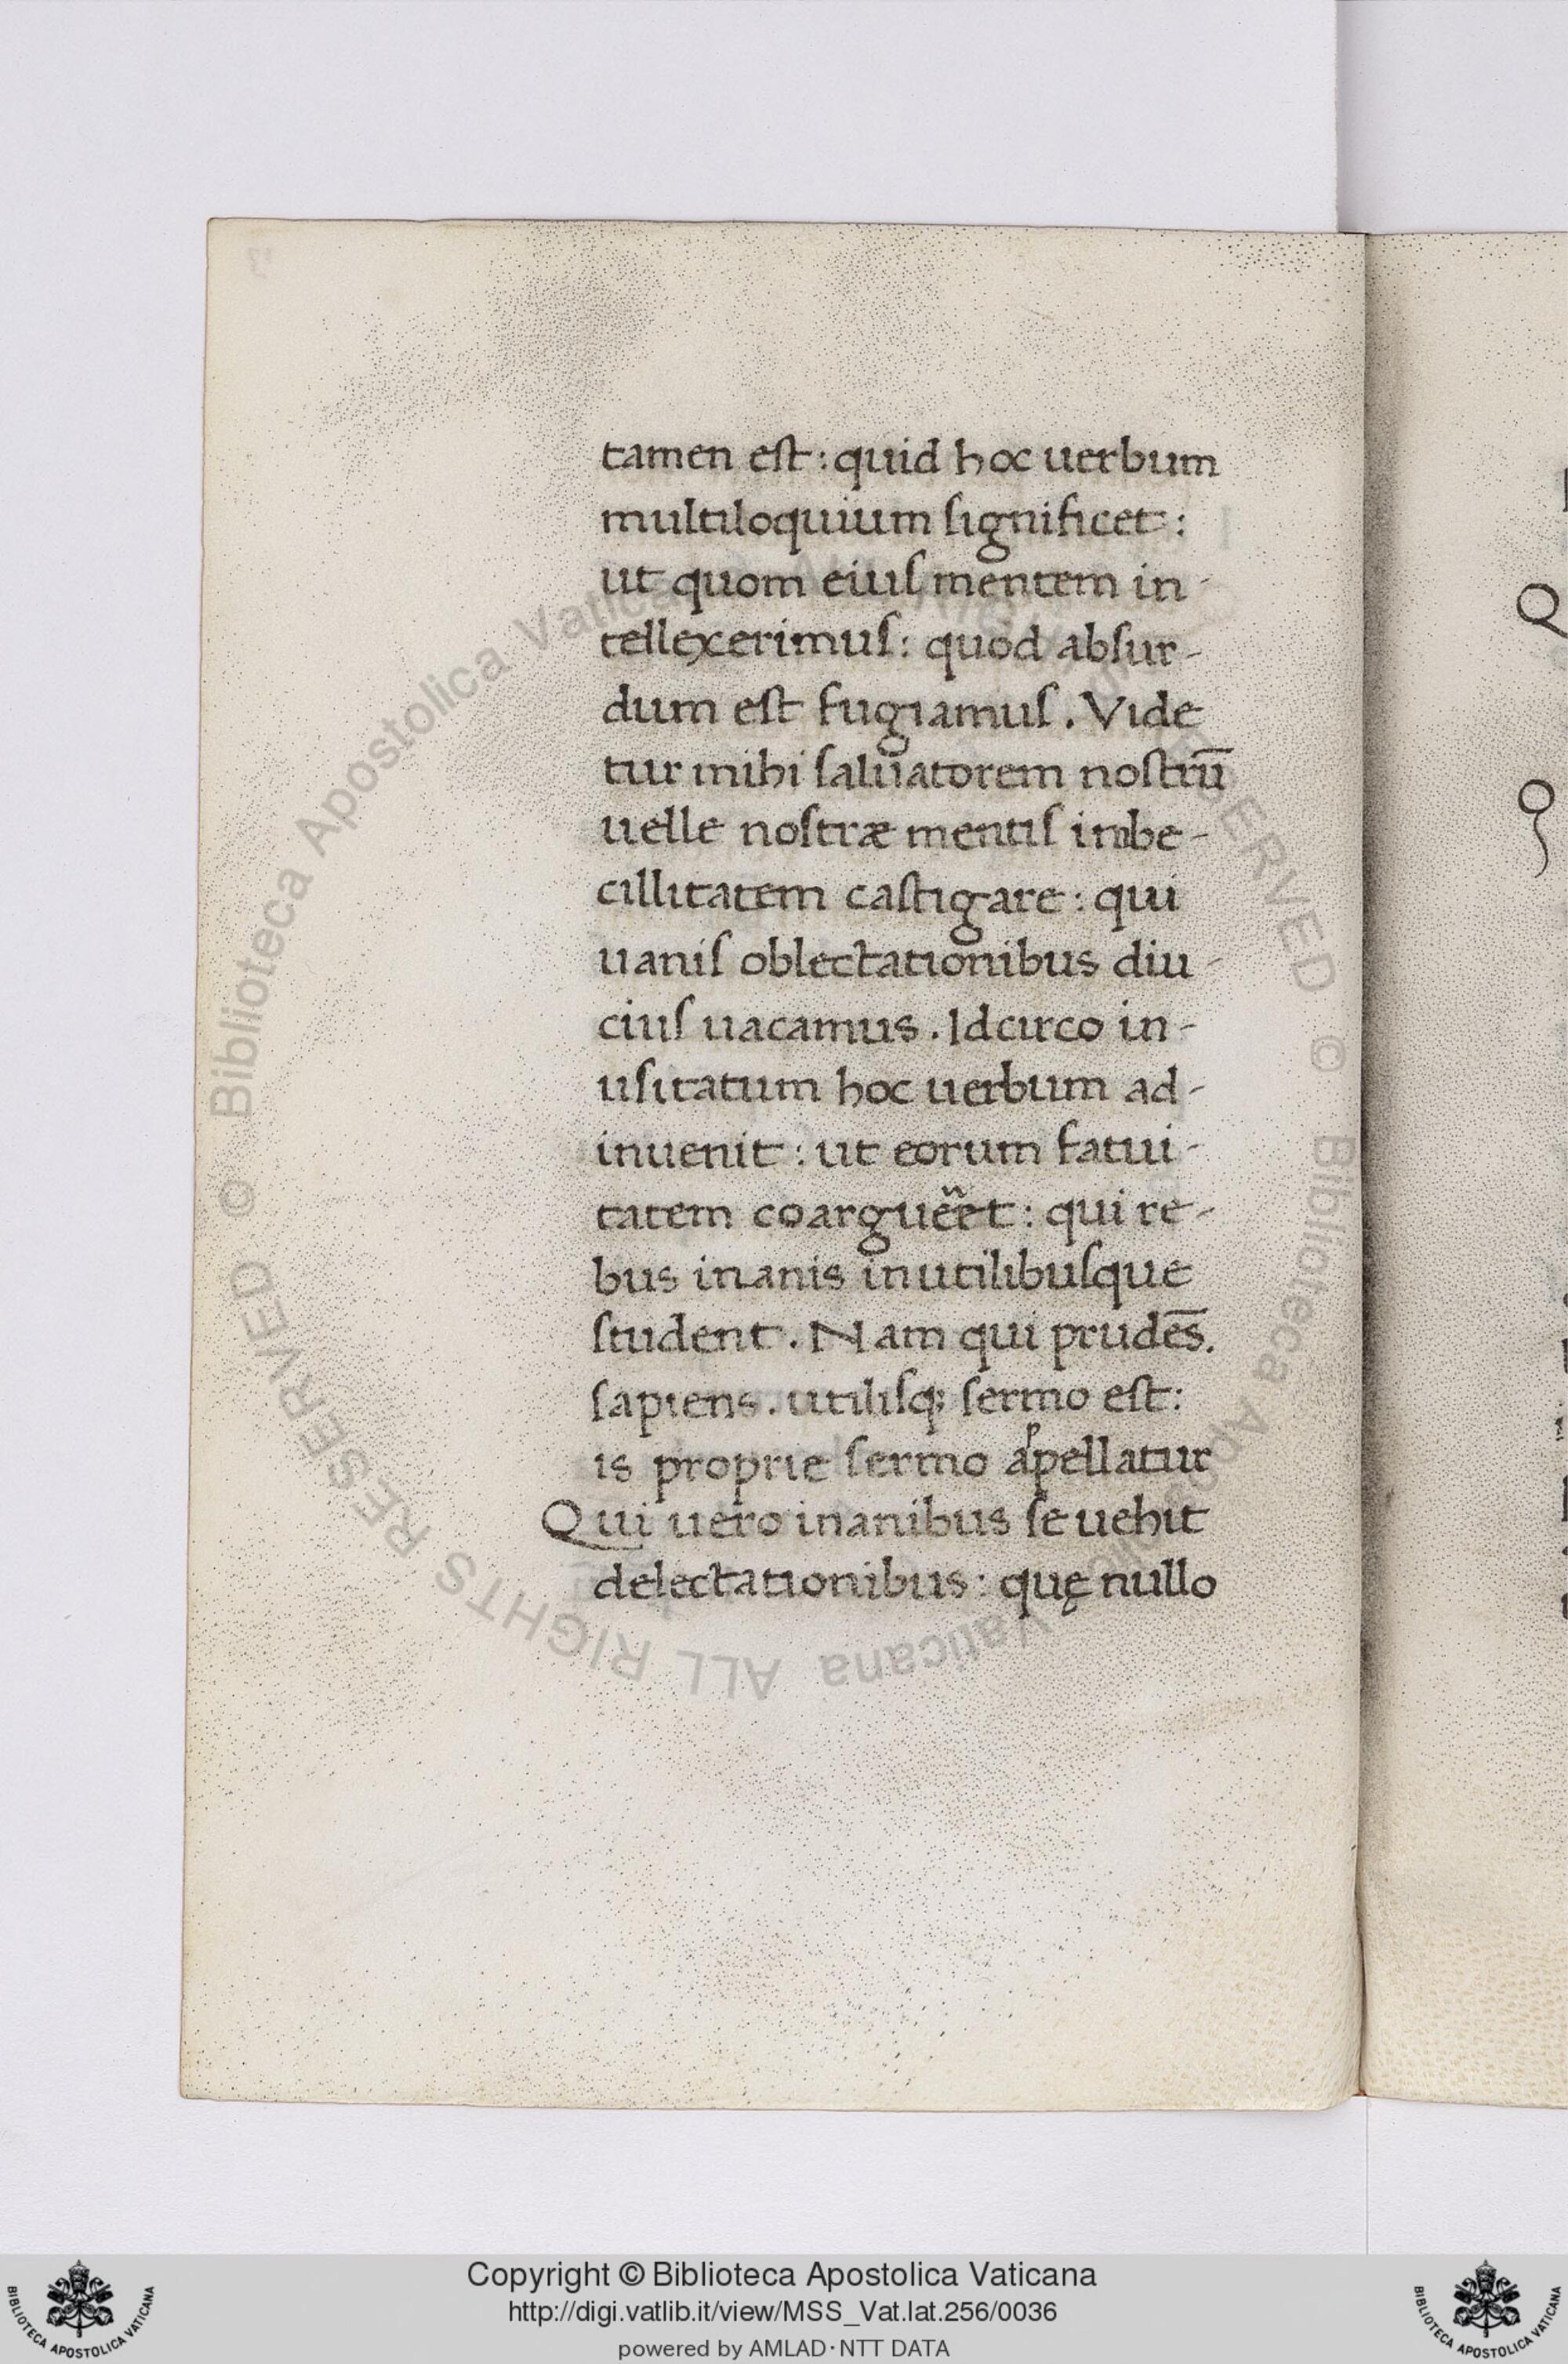 tamen eſt : quid hoc uerbum
multiloquium ſignificet :
ut quom eiuſ mentem in-
tellexerimuſ : quod abſur-
dum eſt fugiamuſ . Vide
tur mihi ſaluatorem noſtrū
uelle noſtræ mentiſ imbe-
cillitatem caſtigare : qui
uaniſ oblectationibus diu-
ciuſ uacamus . Idcirco in-
uſitatum hoc uerbum ad-
inuenit : ut eorum fatui-
tatem coargueret : qui re-
bus inanis inutilibuſque
ſtudent . Nam qui prudēs.
ſapiens . utiliſq; ſermo eſt :
is proprie ſermo appellatur
Qui uero inanibus ſe uehit
delectationibus : quę nullo
© Biblioteca Apostolica Vaticana ALL RIGHTS RESERVED
Copyright © Biblioteca Apostolica Vaticana
http://digi.vatlib.it/view/MSS_Vat.lat.256/0036
powered by AMLAD·NTT DATA
BIBLIOTECA APOSTOLICA VATICANA
BIBLIOTECA APOSTOLICA VATICANA